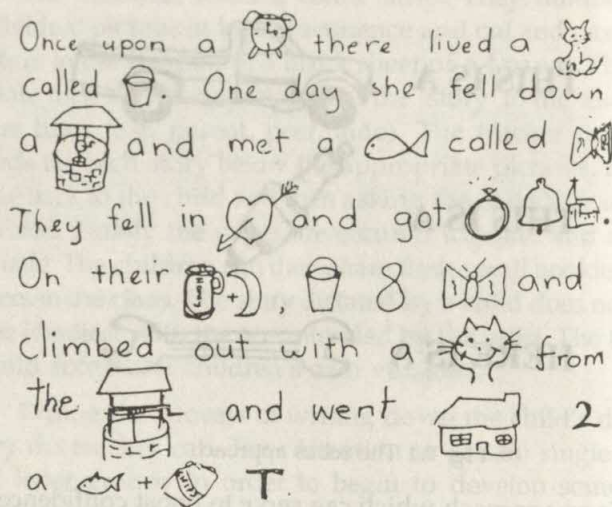 Once upon a there lived a
called One day she fell down
a and met a called
They fell in and got .
On their + , 8 and
climbed out with a from
the and went 2
a + T.